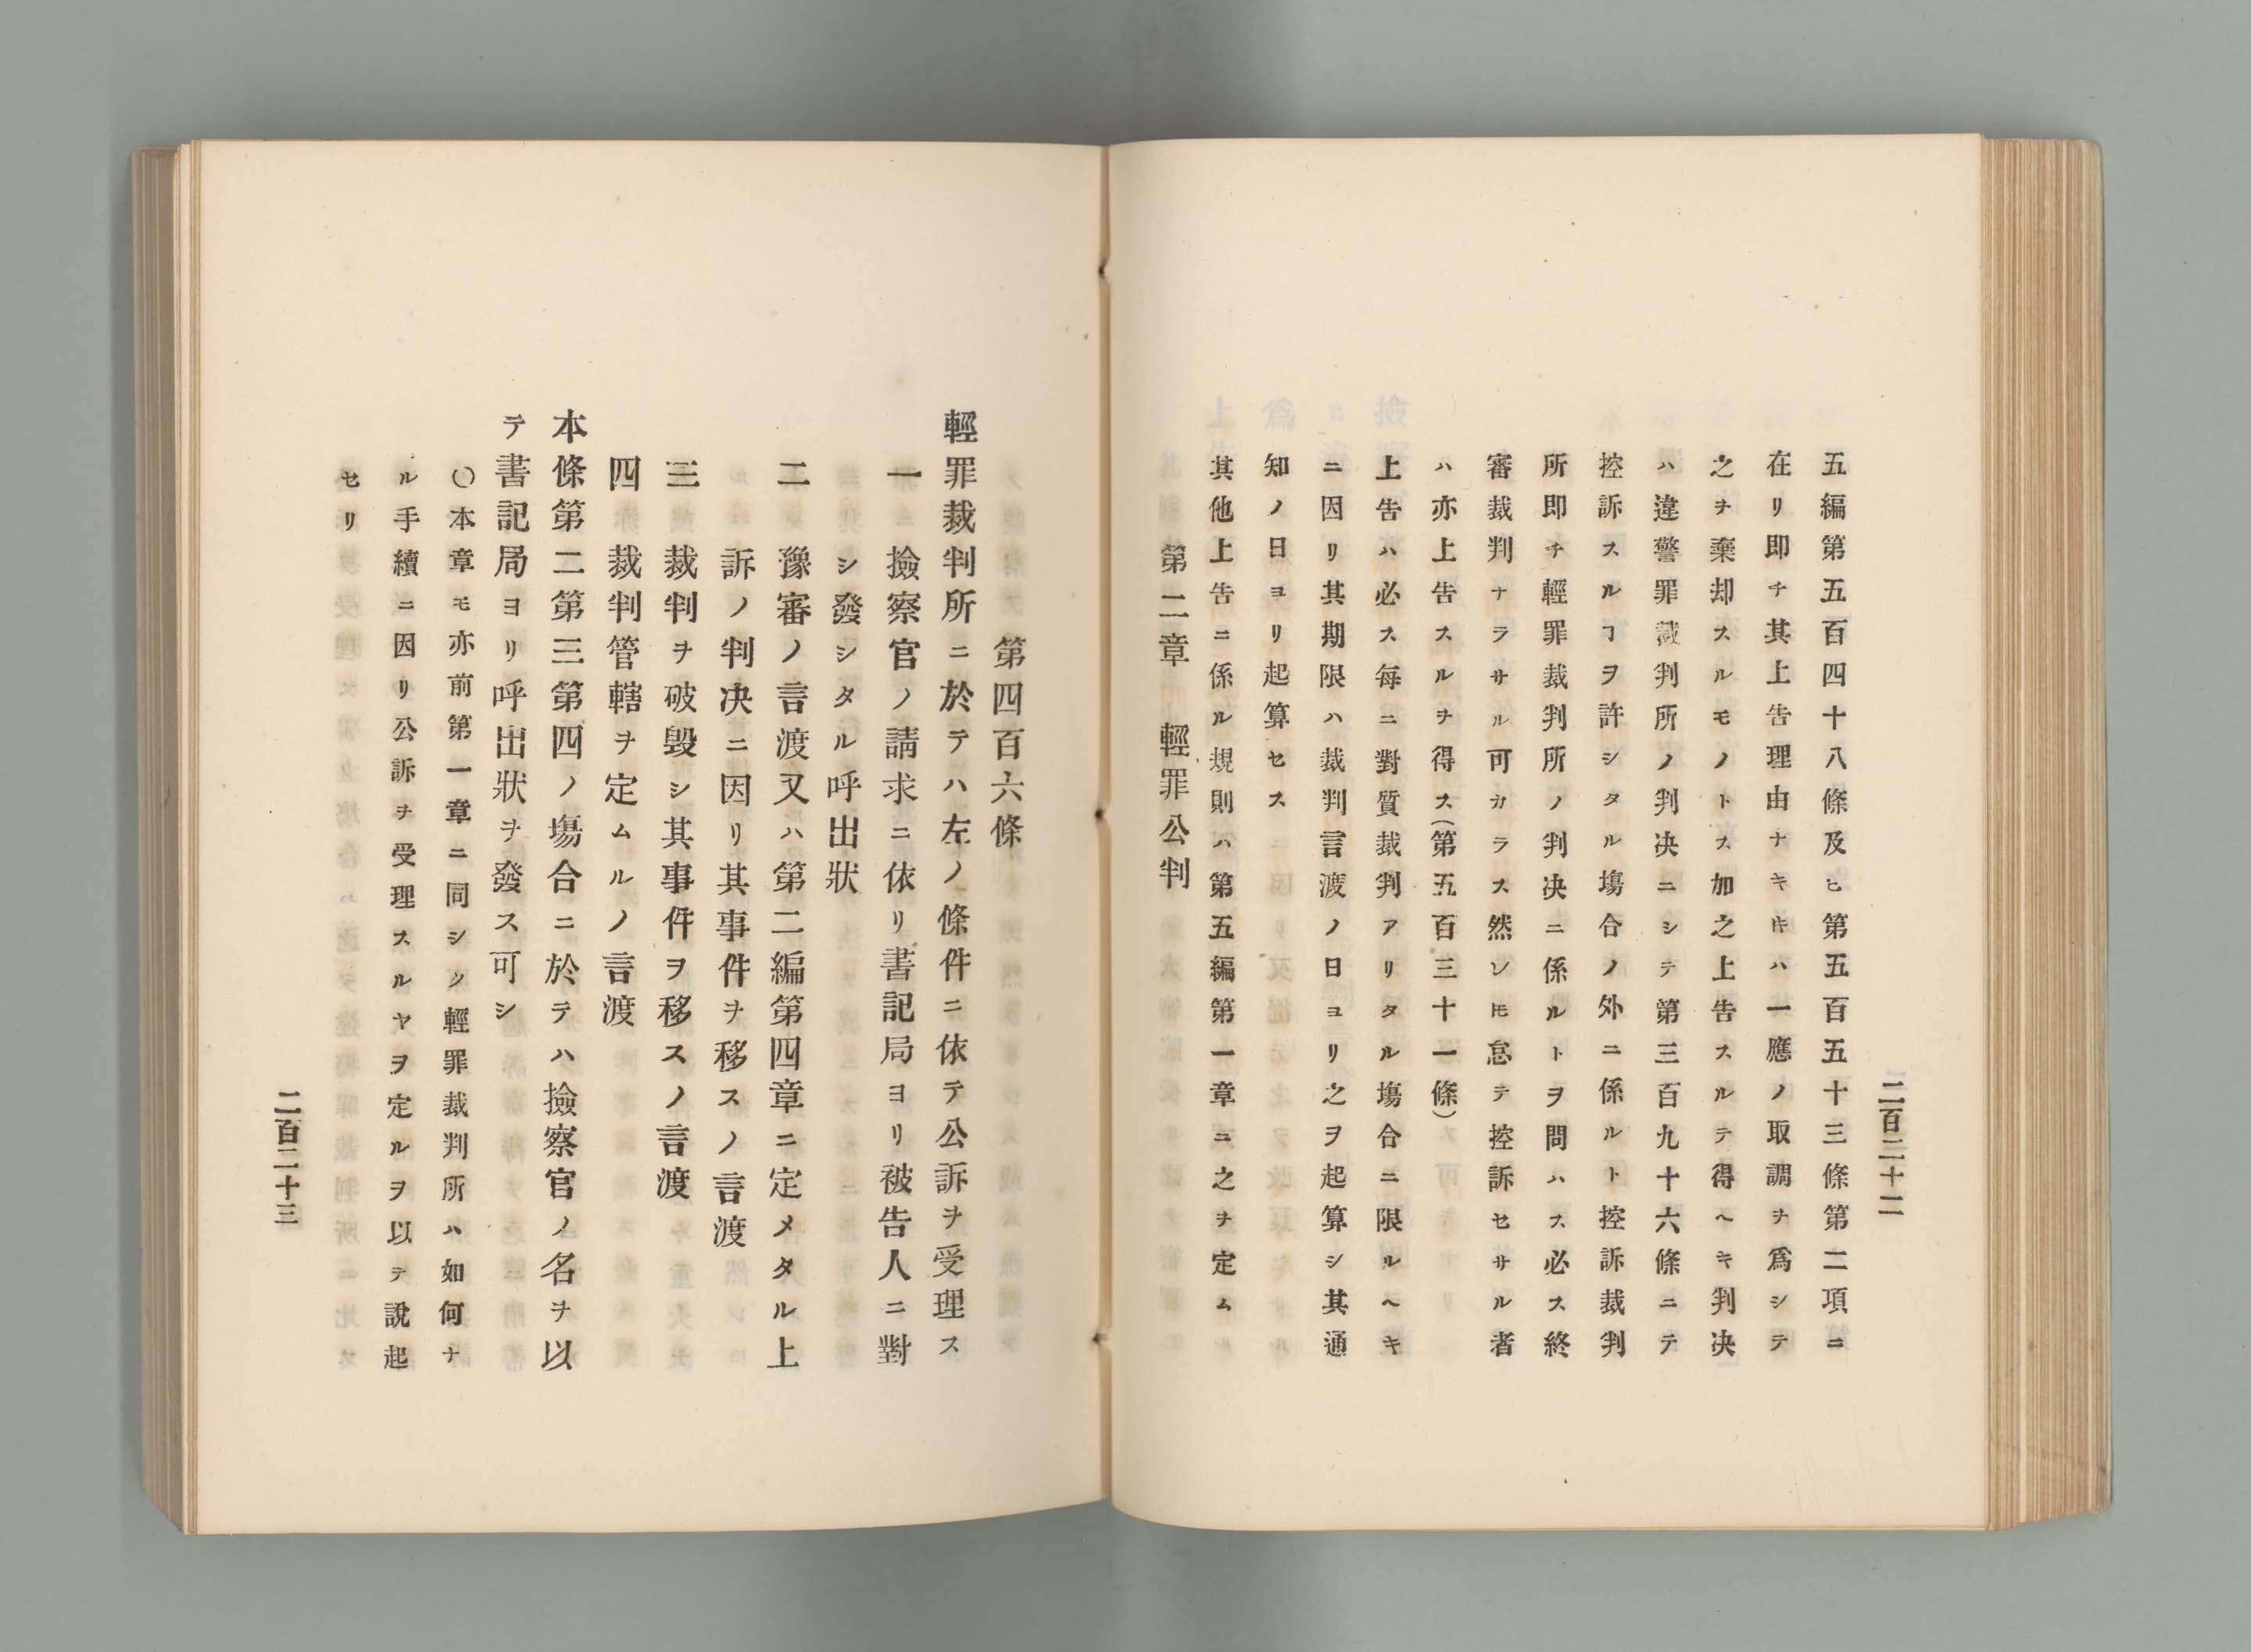 二百二十二
五編第五百四十八條及ヒ第五百五十三條第二項ニ
在リ即チ其上告理由ナキキハ一應ノ取調ヲ爲シテ
之ヲ棄却スルモノトス加之上告スルテ得ヘキ判决
ハ違警罪裁判所ノ判决ニシテ第三百九十六條ニテ
控訴スルヿヲ許シタル塲合ノ外ニ係ルト控訴裁判
所即チ輕罪裁判所ノ判决ニ係ルトヲ問ハス必ス終
審裁判ナラサル可カラス然ンㇳモ怠テ控訴セサル者
ハ亦上告スルヲ得ス(第五百三十一條)
上告ハ必ス每ニ對質裁判アリタル塲合ニ限ルヘキ
ニ因リ其期限ハ裁判言渡ノ日ヨリ之ヲ起算シ其通
知ノ日ヨリ起算セス
其他上告ニ係ル規則ハ第五編第一章ニ之ヲ定ム
第二章 輕罪公判
第四百六條
輕罪裁判所ニ於テハ左ノ條件ニ依テ公訴ヲ受理ス
一 撿察官ノ請求ニ依リ書記局ヨリ被告人ニ對
シ發シタル呼出狀
二 豫審ノ言渡又ハ第二編第四章ニ定メタル上
訴ノ判决ニ因リ其事件ヲ移スノ言渡
三 裁判ヲ破毀シ其事件ヲ移スノ言渡
四 裁判管轄ヲ定ムルノ言渡
本條第二第三第四ノ塲合ニ於テハ撿察官ノ名ヲ以
テ書記局ヨリ呼出狀ヲ發ス可シ
〇本章モ亦前第一章ニ同シク輕罪裁判所ハ如何ナ
ル手續ニ因リ公訴ヲ受理スルヤヲ定ルヲ以テ說起
セリ
二百二十三